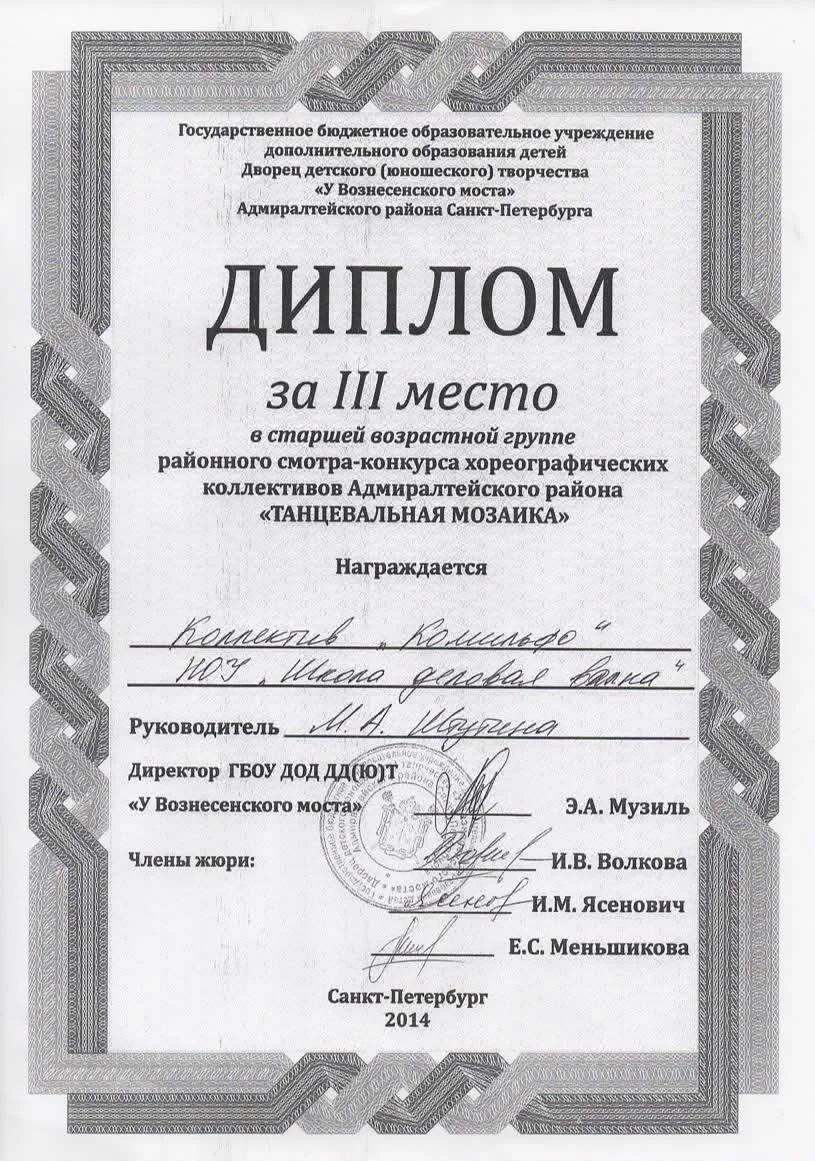 Государственное бюджетное образовательное учреждение
дополнительного образования детей
Дворец детского (юношеского) творчества
«У Вознесенского моста»
Адмиралтейского района Санкт-Петербурга
ДИПЛОМ
за III место
в старшей возрастной группе
районного смотра-конкурса хореографических
коллективов Адмиралтейского района
«ТАНЦЕВАЛЬНАЯ МОЗАИКА»
Награждается
Коллектив „Комильфо“
НОУ „Школа деловая волна“
Руководитель М.А. Штутина
Директор ГБОУ ДОД ДД(Ю)Т
«У Вознесенского моста» Э.А. Музиль
Члены жюри: И.В. Волкова
И.М. Ясенович
Е.С. Меньшикова
Санкт-Петербург
2014